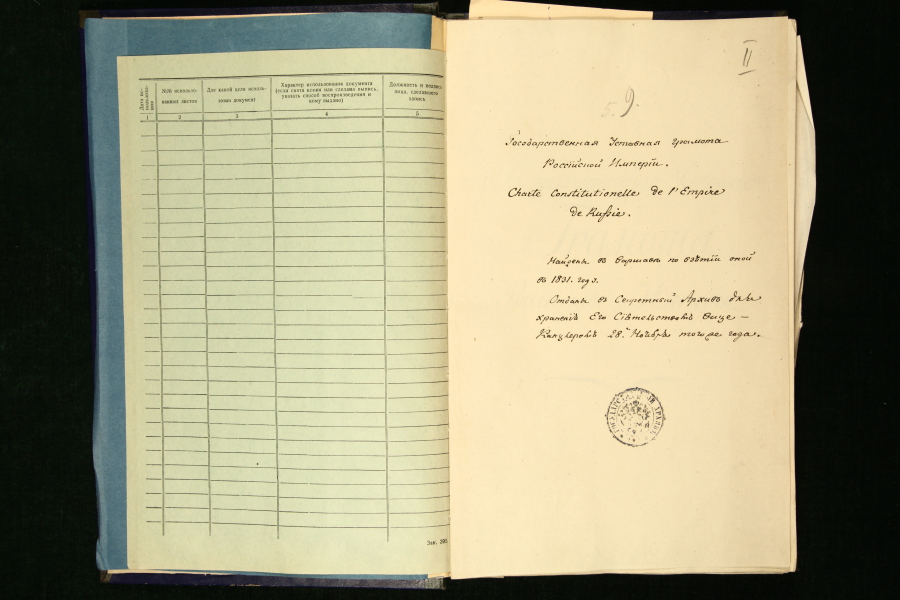 Дата ис-
пользо-
вания
№№ использо-
ванных листов
Для какой цели исполь-
зован документ
Характер использования документа
(если снята копия или сделана выпись,
указать способ воспроизведения и
кому выдано)
Должность и подпись
лица, сделавшего
запись
1 2 3 4 5
Зак. 295
II
9.
Государственная Уставная грамота
Россійской Имперіи.
Charte Constitutionelle de l'Empire
de Russie.
Найдены въ Варшавѣ по взятіи оной
въ 1831. году.
Отданы въ Секретный Архивъ для
храненія Его Сіятельствомъ Вице-
Канцлеромъ 28. Ноября того же года.
ГОСУДАРСТВЕННЫЙ АРХИВЪ